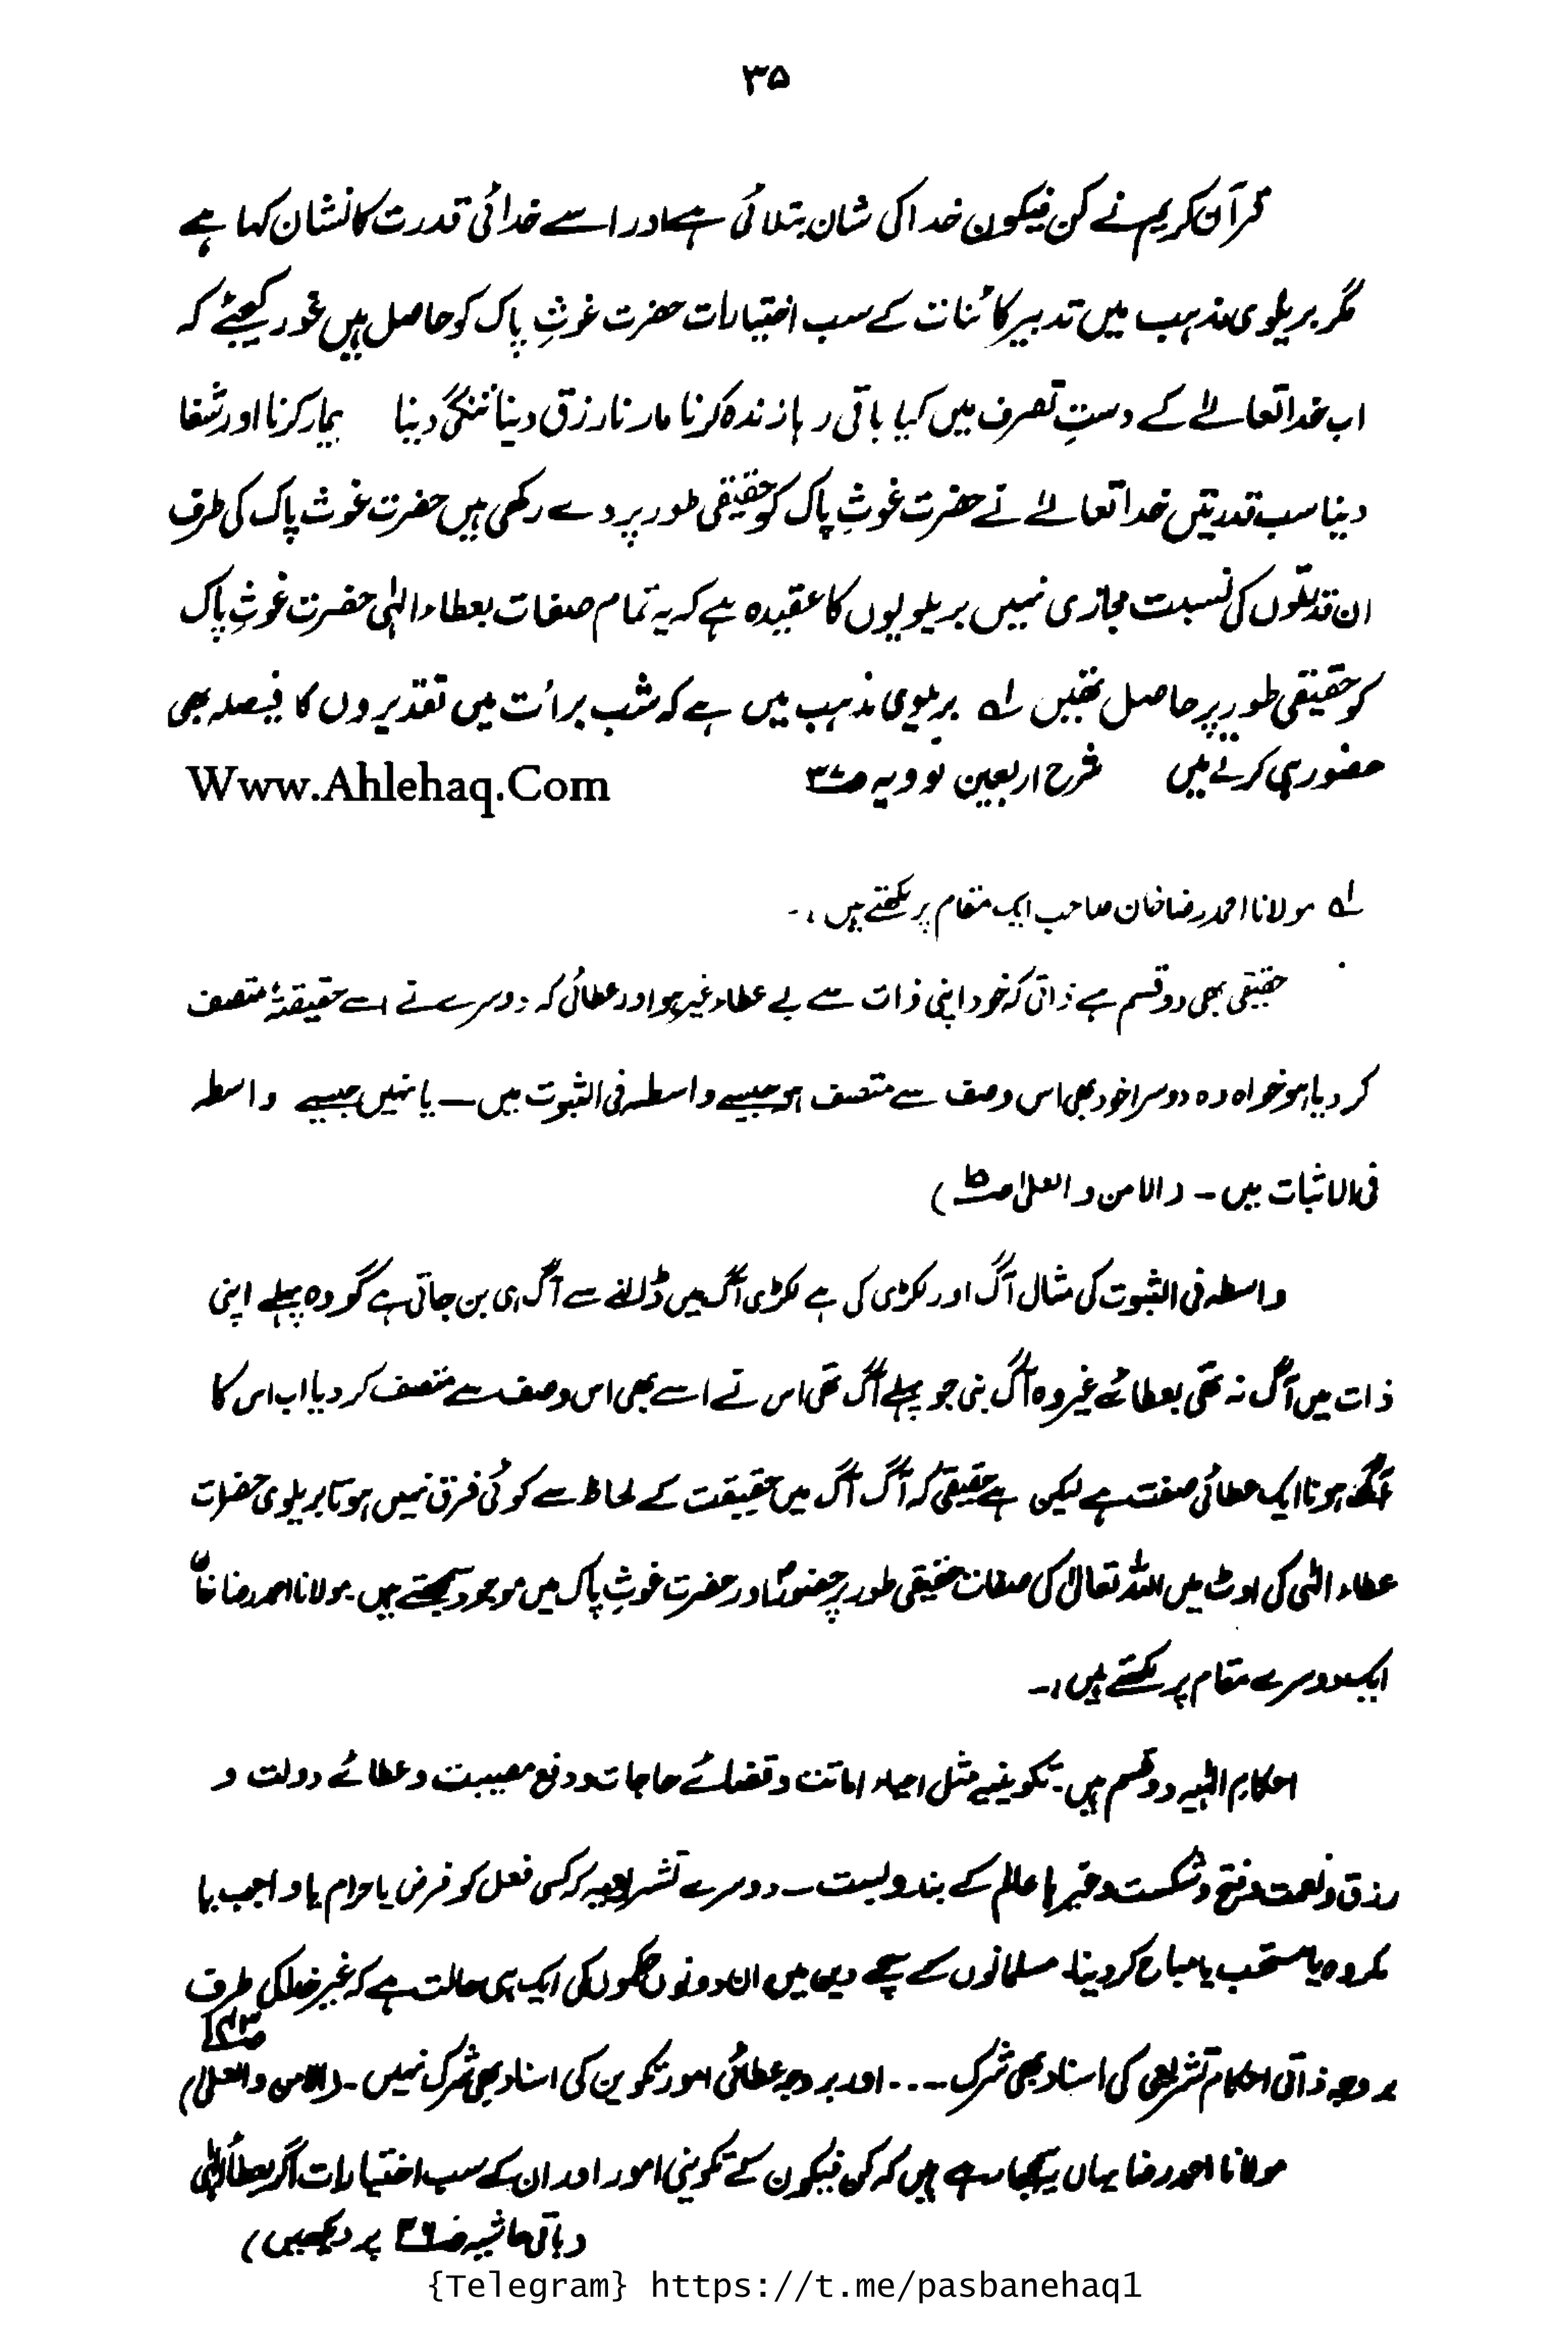 ۳۵
قرآن کریم نے کن فیکون خدا کی شان بتلائی ہے اور اسے خدائی قدرت کا نشان کہا ہے
مگر بریلوی مذہب میں تدبیر کائنات کے سب اختیارات حضرت غوثِ پاک کو حاصل ہیں غور کیجئے کہ
اب خدا تعالےٰ کے دستِ تصرف میں کیا باقی رہا زندہ کرنا مارنا رزق دینا تنگی دینا بیمار کرنا اور شفا
دینا سب قدرتیں خدا تعالےٰ نے حضرت غوثِ پاک کو حقیقی طور پر دے رکھی ہیں حضرت غوث پاک کی طرف
ان قدرتوں کی نسبت مجازی نہیں بریلویوں کا عقیدہ ہے کہ یہ تمام صفات بعطاء الہٰی حضرت غوثِ پاک
کو حقیقی طور پر حاصل تھیں لہ بریلوی مذہب میں ہے کہ شب برأت میں تقدیروں کا فیصلہ بھی
حضور ہی کرتے ہیں شرح اربعین نوویہ
Www.Ahlehaq.Com
لہ مولانا احمد رضا خان صاحب ایک مقام پر لکھتے ہیں :۔
حقیقی بھی دو قسم ہے ذاتی کہ خود اپنی ذات سے بے عطاء غیر ہو اور عطائی کہ دوسرے نے اسے حقیقۃً متصف
کر دیا ہو خواہ وہ دوسرا خود بھی اس وصف سے متصف ہو جیسے واسطہ فی الثبوت میں — یا نہیں جیسے واسطہ
فی الاثبات میں - (الامن والعلیٰ )
واسطہ فی الثبوت کی مثال آگ اور لکڑی کی ہے لکڑی آگ میں ڈالنے سے آگ ہی بن جاتی ہے گو وہ پہلے اپنی
ذات میں آگ نہ تھی بعطائے غیر وہ آگ بنی جو پہلے آگ تھی اس نے اسے بھی اس وصف سے متصف کر دیا اب اس کا
آگ ہونا ایک عطائی صفت ہے لیکن ہے حقیقی کہ آگ آگ میں حقیقت کے لحاظ سے کوئی فرق نہیں ہوتا بریلوی حضرات
عطاء الٰہی کی اوٹ میں اللہ تعالیٰ کی صفات حقیقی طور پر حضورؐ اور حضرت غوثِ پاک میں موجود سمجھتے ہیں۔ مولانا احمد رضا خاں
ایک دوسرے مقام پر لکھتے ہیں :۔
احکام الٰہیہ دو قسم ہیں۔ تکوینیہ مثل احیاء اماتت و قضائے حاجات و دفع مصیبت و عطائے دولت و
رزق و نعمت و فتح و شکست وغیرہا عالم کے بندوبست — دوسرے تشریعیہ کہ کسی فعل کو فرض یا حرام یا واجب یا
مکروہ یا مستحب یا مباح کر دینا۔ مسلمانوں کے سچے دین میں ان دونوں حکموں کی ایک ہی حالت ہے کہ غیر خدا کی طرف
بر وجہ ذاتی احکام تشریعی کی اسناد بھی شرک ۔۔۔ اور بر وجہ عطائی امور تکوین کی اسناد بھی شرک نہیں۔ (الامن والعلیٰ)
مولانا احمد رضا یہاں یہ سمجھا رہے ہیں کہ کن فیکون کے تکوینی امور اور ان کے سب اختیارات اگر بعطأ الٰہی
(باقی حاشیہ ص۳۶ پر دیکھیں)
{Telegram} https://t.me/pasbanehaq1